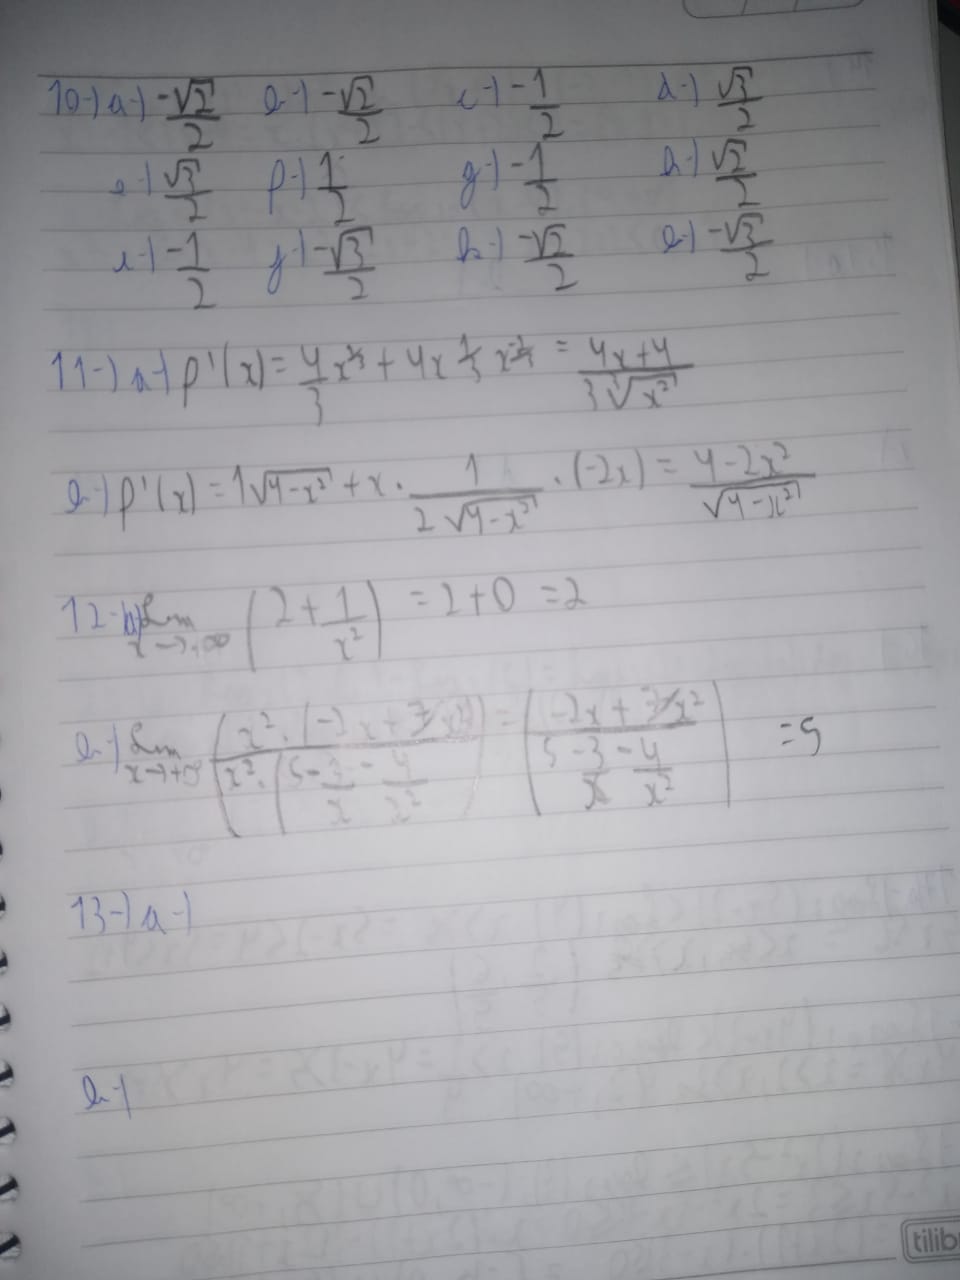 10-) a-) -√2/2 b-) -√2/2 c-) -1/2 d-) √3/2
e-) √3/2 f-) 1/2 g-) -1/2 h-) √2/2
i-) -1/2 j-) -√3/2 k-) -√2/2 l-) -√3/2
11-) a-) f'(x) = 4/3 x^(1/3) + 4x 1/3 x = (4x+4)/(3 ∛x²)
b-) f'(x) = 1√(4-x²) + x · 1/(2√(4-x²)) · (-2x) = (4-2x²)/√(4-x²)
12-) a) Lim x→+∞ (2 + 1/x²) = 2+0 = 2
b-) Lim x→+∞ (x² · (-2x + 7/x²)/(x² · (5 - 3/x - 4/x²)) = ((-2x + 7/x²)/(5 - 3/x - 4/x²)) = 5
13-) a-)
b-)